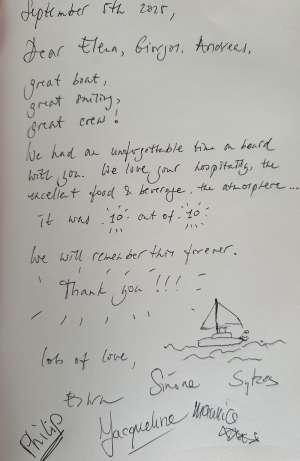 September 5th 2025,
Dear Elena, Giorgos, Andreas,
great boat,
great smiling,
great crew!
We had an unforgettable time on board
with you. We love your hospitality, the
excellent food & beverage, the atmosphere...
it was 10 out of 10
We will remember this forever.
Thank you !!!
lots of love,
Simone Sytzes
Philip
Jacqueline
Maurice